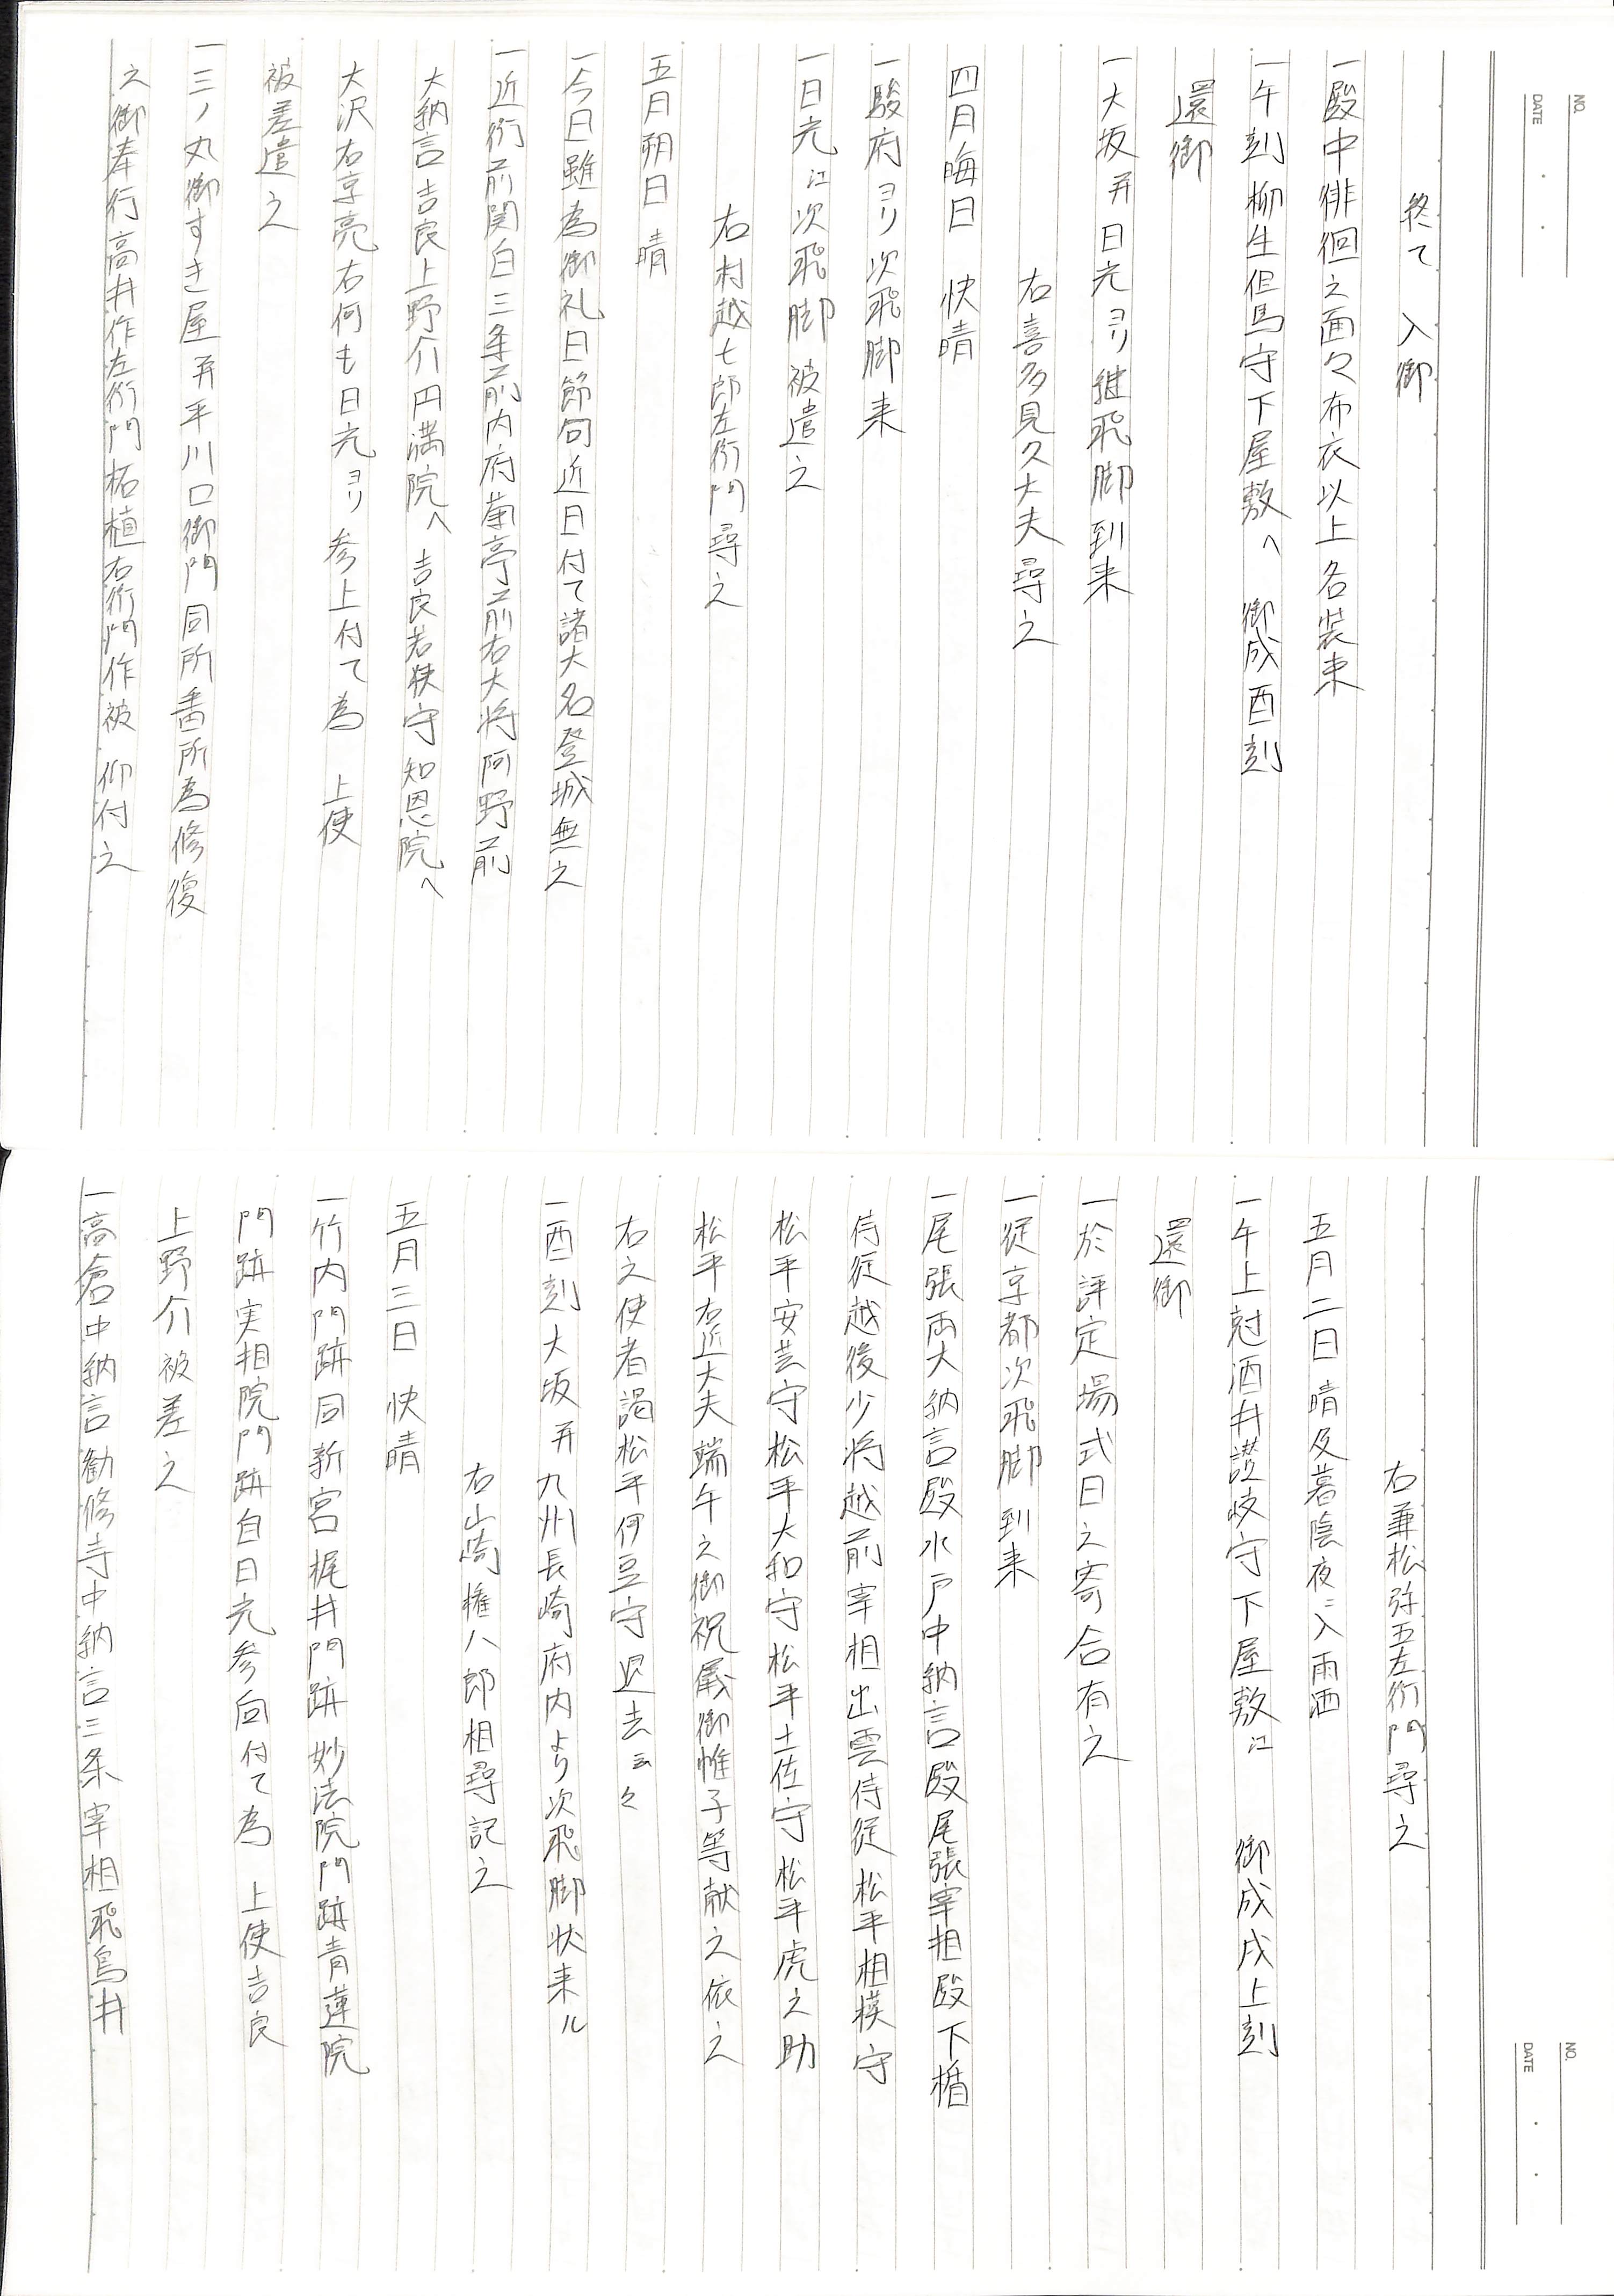 NO.
DATE
終て　入御
一殿中徘徊之面々布衣以上各装束
一午刻柳生但馬守下屋敷へ　御成酉刻
還御
一大坂并日光ヨリ継飛脚到来
右喜多見久大夫尋之
四月晦日　快晴
一駿府ヨリ次飛脚来
一日光江次飛脚被遣之
右村越七郎左衛門尋之
五月朔日　晴
一今日雖為御礼日節句近日付て諸大名登城無之
一近衛前関白三条前内府菊亭前右大将阿野前
大納言吉良上野介円満院へ吉良若狭守知恩院へ
大沢右京亮右何も日光ヨリ参上付て為　上使
被差遣之
一三ノ丸御すき屋并平川口御門同所番所為修復
之御奉行高井作左衛門柘植右衛門作被　仰付之
NO.
DATE
右兼松弥五左衛門尋之
五月二日晴及暮陰夜ニ入雨洒
一午上尅酒井讃岐守下屋敷江　御成戌上刻
還御
一於評定場式日之寄合有之
一従京都次飛脚到来
一尾張両大納言殿水戸中納言殿尾張宰相殿下楯
侍従越後少将越前宰相出雲侍従松平相模守
松平安芸守松平大和守松平土佐守松平虎之助
松平右近大夫端午之御祝儀御帷子等献之依之
右之使者謁松平伊豆守退去云々
一酉刻大坂并九州長崎府内より次飛脚状来ル
右山崎権八郎相尋記之
五月三日　快晴
一竹内門跡同新宮梶井門跡妙法院門跡青蓮院
門跡実相院門跡自日光参向付て為　上使吉良
上野介被差之
一高倉中納言勧修寺中納言三条宰相飛鳥井